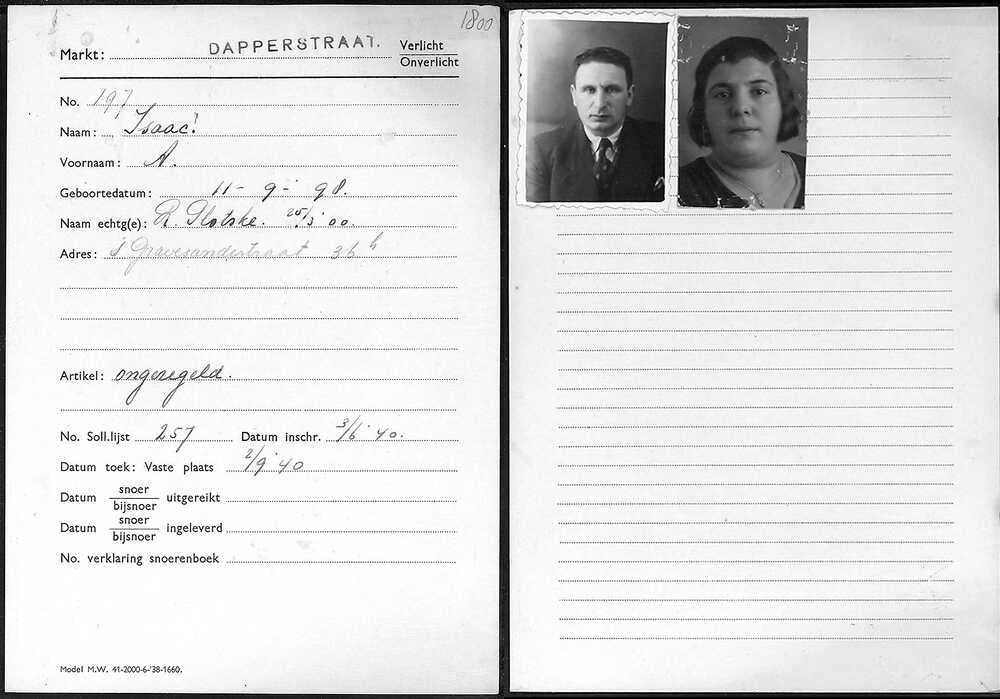 1800
Markt: DAPPERSTRAAT. Verlicht
Onverlicht
No. 197
Naam: Isaac!
Voornaam: A.
Geboortedatum: 11 - 9 - 98.
Naam echtg(e): R. Plotske. 25/3 00.
Adres: 's Gravesandestraat 36 h
Artikel: ongeregeld.
No. Soll.lijst 257 Datum inschr. 3/6 '40.
Datum toek: Vaste plaats 2/9 '40
Datum snoer
bijsnoer uitgereikt
Datum snoer
bijsnoer ingeleverd
No. verklaring snoerenboek
Model M.W. 41-2000-6-'38-1660.